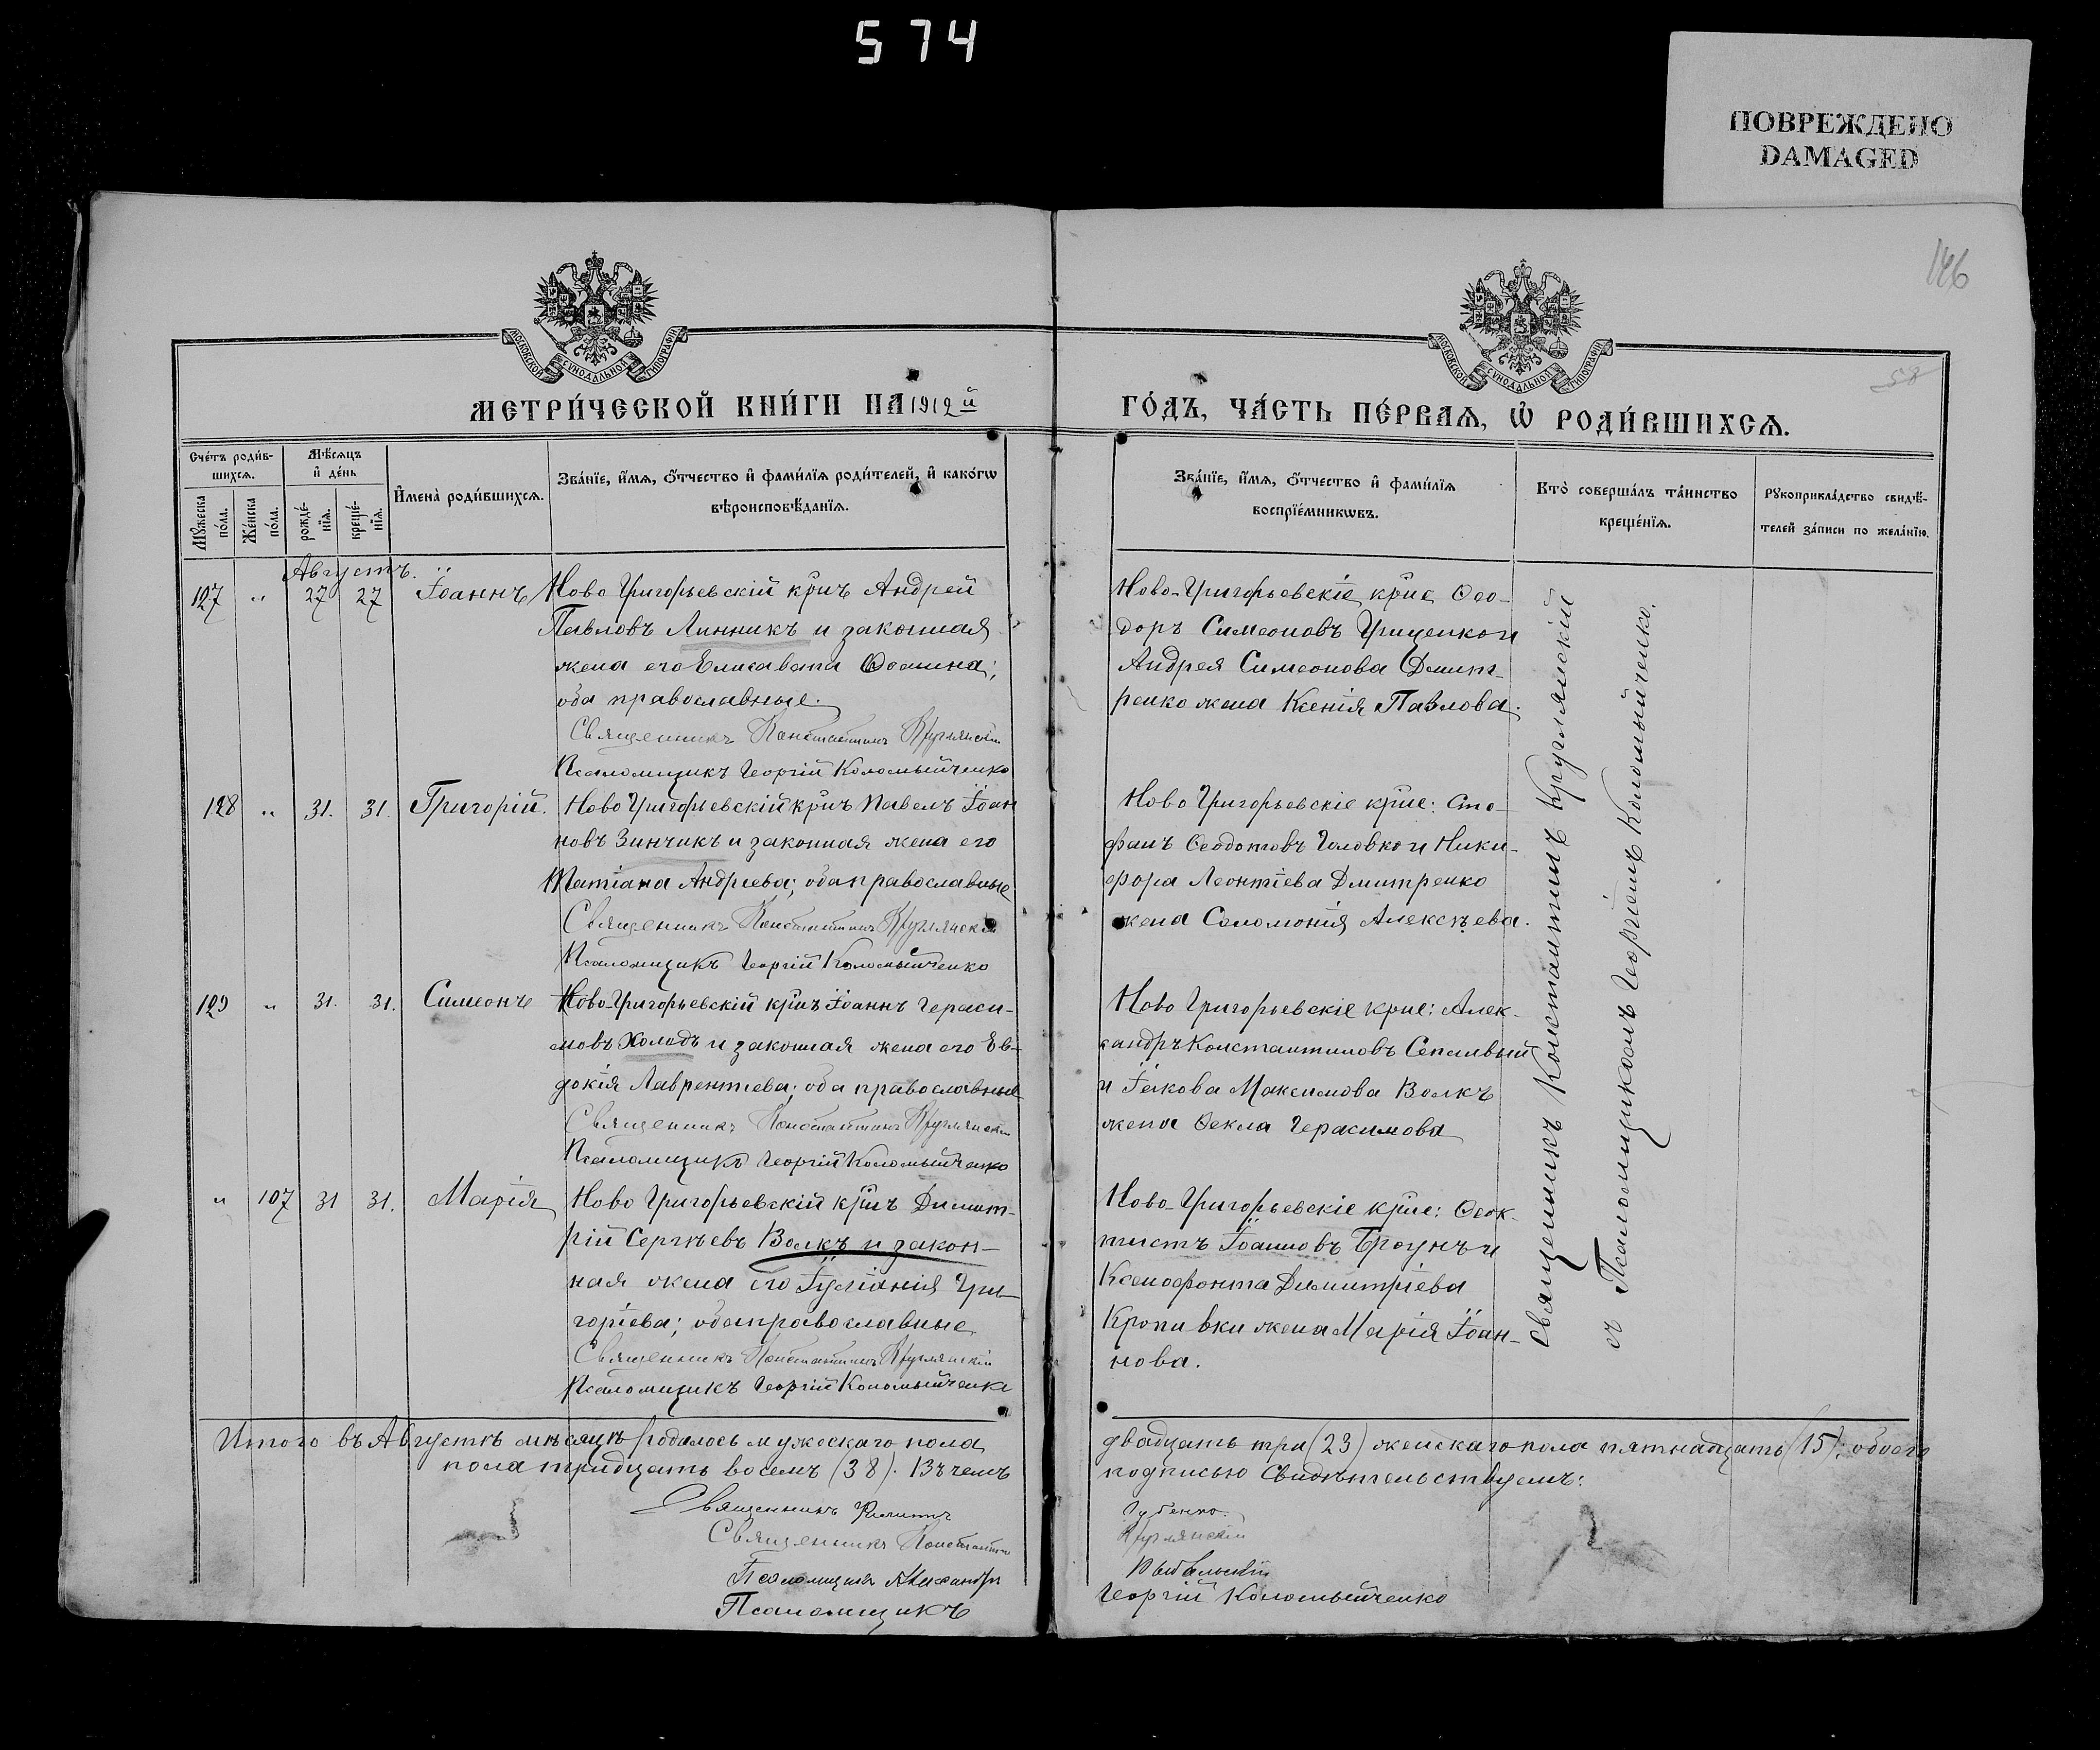 574
ПОВРЕЖДЕНО
DAMAGED
146
58
МОСКОВСКОЙ СѴНОДАЛЬНОЙ ТИПОГРАФІИ
МОСКОВСКОЙ СѴНОДАЛЬНОЙ ТИПОГРАФІИ
МЕТРИ́ЧЕСКОЙ КНИ́ГИ НА 1912й
ГО́ДЪ, ЧА́СТЬ ПЕ́РВАѦ, Ѽ РОДИ́ВШИХСѦ.
Сче́тъ роди́в-
шихсѧ.
Мꙋ́жеска по́ла.
Же́нска по́ла.
Мѣ́сѧцъ
и҆ де́нь
рожде́-
нїѧ.
креще́-
нїѧ.
И҆мена̀ роди́вшихсѧ.
Зва́нїе, и҆́мѧ, ѻ҆́тчество и҆ фами́лїѧ роди́телей, и҆ како́гѡ
вѣроисповѣ́данїѧ.
Зва́нїе, и҆́мѧ, ѻ҆́тчество и҆ фами́лїѧ
воспрїе́мникѡвъ.
Кто̀ соверша́лъ та́инство
креще́нїѧ.
Рꙋкоприкла́дство свидѣ́-
телей за́писи по жела́нїю.
Августъ.
127 " 27 27 Іоаннъ
Ново Григорьевскій кр-нъ Андрей
Павловъ Линникъ и законная
жена его Елисавета Ѳомина;
оба православные.
Священникъ Константинъ Круглянскій
Псаломщикъ Георгій Коломыйченко
Ново-Григорьевскіе кр-не Ѳео-
доръ Симеоновъ Гриценко и
Андрея Симеонова Дмит-
ренко жена Ксенія Павлова.
128 " 31. 31. Григорій.
Ново Григорьевскій кр-нъ Павелъ Іоан
новъ Зинчикъ и законная жена его
Татіана Андреева; оба православные
Священникъ Константинъ Круглянскій
Псаломщикъ Георгій Коломыйченко
Ново Григорьевскіе кр-не: Сте-
фанъ Ѳеодотовъ Головко и Ники-
фора Леонтіева Дмитренко
жена Соломонія Алексѣева.
129 " 31. 31. Симеонъ
Ново-Григорьевскій кр-нъ Іоаннъ Гераси-
мовъ Холодъ и законная жена его Ев-
докія Лаврентіева; оба православные
Священникъ Константинъ Круглянскій
Псаломщикъ Георгій Коломыйченко
Ново Григорьевскіе кр-не: Алек-
сандръ Константиновъ Сепливый
и Іакова Максимова Волкъ
жена Ѳекла Герасимова
" 107 31 31. Марія
Ново Григорьевскій кр-нъ Димит-
рій Сергѣевъ Волкъ и закон-
ная жена его Іуліанія Гри-
горіева; оба православные
Священникъ Константинъ Круглянскій
Псаломщикъ Георгій Коломыйченко
Ново-Григорьевскіе кр-не: Ѳеок-
тистъ Іоанновъ Броунъ и
Ксенофонта Димитріева
Кропивки жена Марія Іоан-
нова.
Священникъ Константинъ Круглянскій
съ Псаломщикомъ Георгіемъ Коломыйченко.
Итого въ Августѣ мѣсяцѣ родилось мужескаго пола двадцать три (23) женскаго пола пятнадцать (15); обоего
пола тридцать восемъ (38). Въ чемъ подписью свидѣтельствуемъ:
Священникъ Филиппъ Губенко.
Священникъ Константинъ Круглянскій
Псаломщикъ Александръ
Псаломщикъ Георгій Коломыйченко